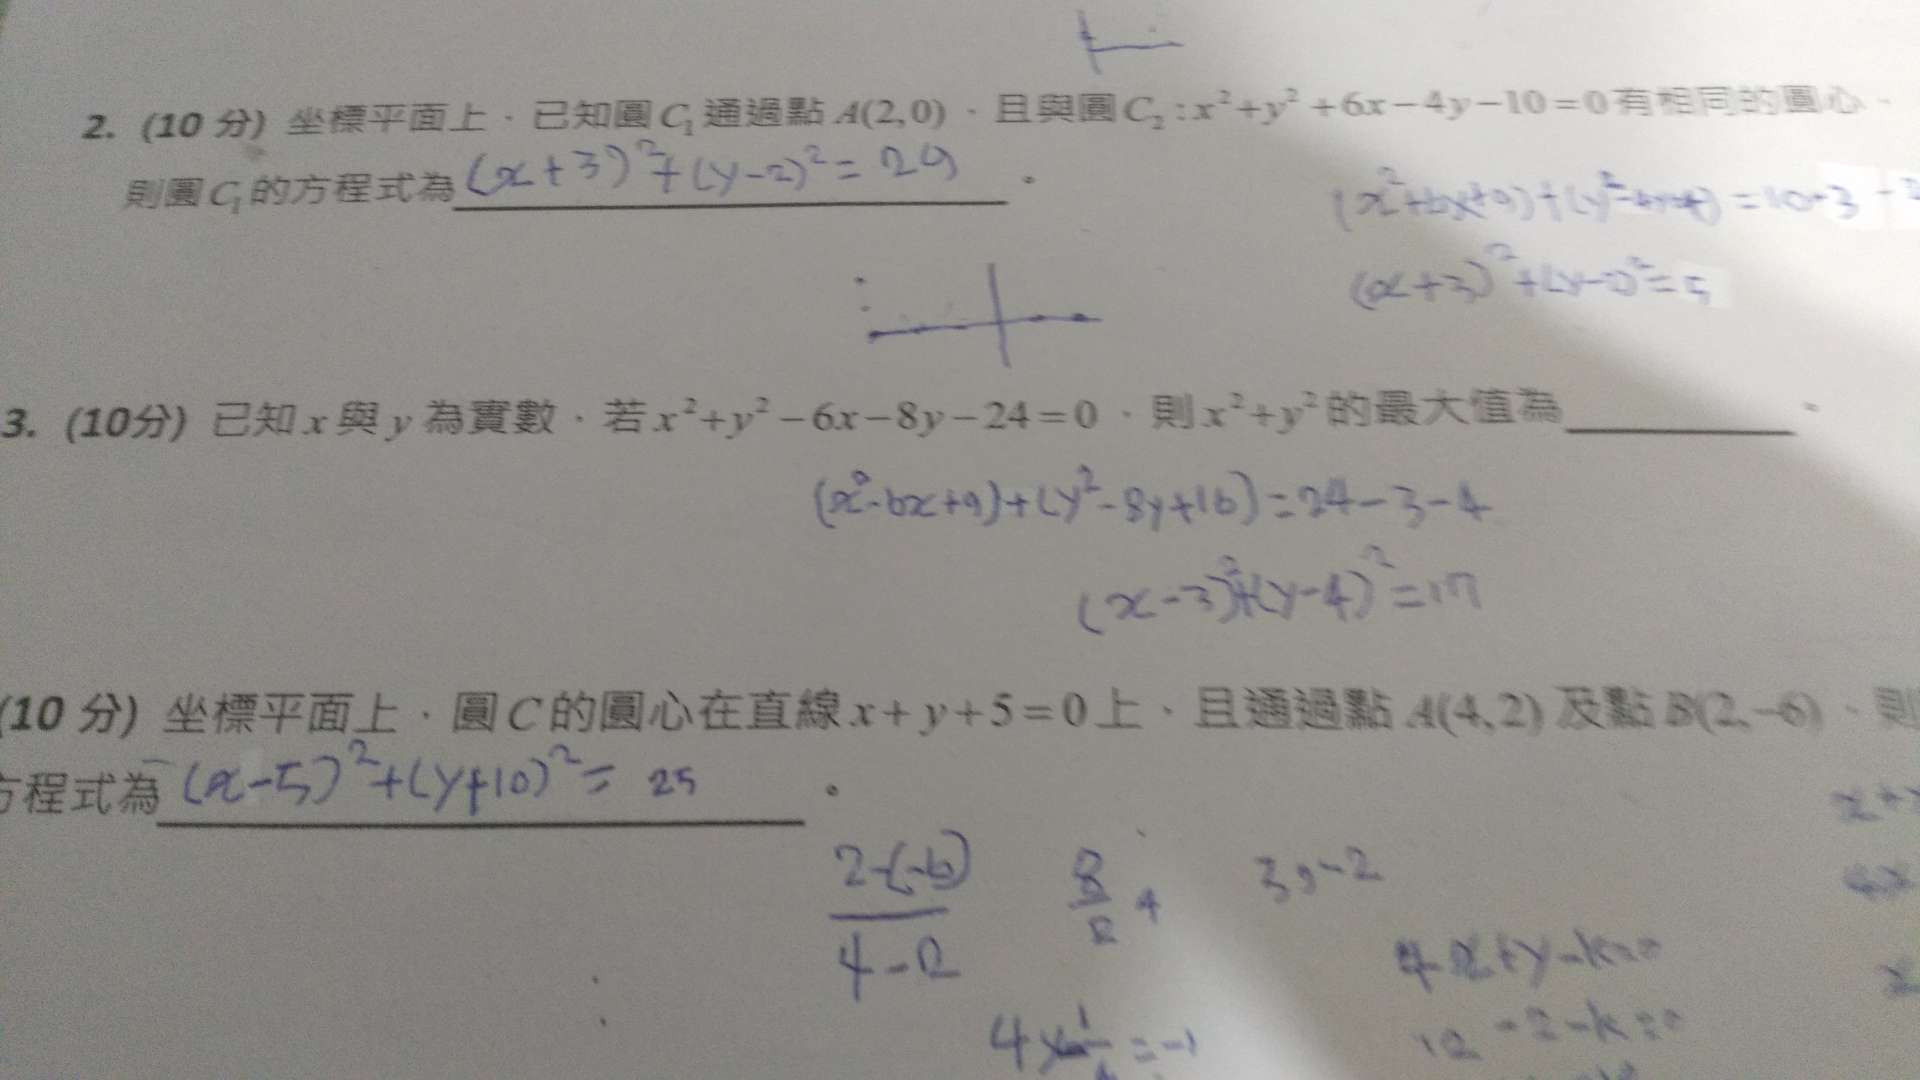 2. (10 分) 坐標平面上，已知圓 C₁ 通過點 A(2,0)，且與圓 C₂ : x²+y²+6x−4y−10=0 有相同的圓心，
則圓 C₁ 的方程式為 (x+3)²+(y-2)²= 29 。
(x+3)²+(y-2)²=5
3. (10分) 已知 x 與 y 為實數，若 x²+y²−6x−8y−24=0，則 x²+y² 的最大值為 。
(x²-6x+9)+(y²-8y+16)=24-3-4
(x-3)²+(y-4)²=17
(10 分) 坐標平面上，圓 C 的圓心在直線 x+y+5=0 上，且通過點 A(4,2) 及點 B(2,−6)，則
方程式為 (x-5)²+(y+10)²= 25 。
2-(-6) 8 3,-2
4-2 2 4
4x+y-k=0
12-2-k=0